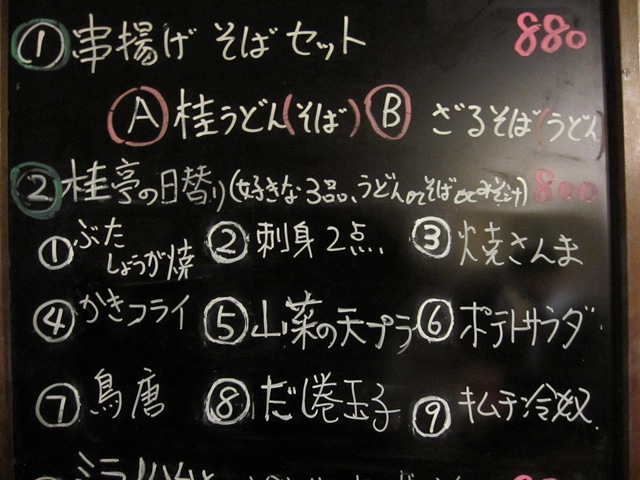 ① 串揚げ そばセット 880
Ⓐ 桂うどん(そば) Ⓑ ざるそば(うどん
② 桂亭の日替り(好きな3品、うどんorそばorみそ汁) 800
① ぶたしょうが焼 ② 刺身2点、 ③ 焼さんま
④ かきフライ ⑤ 山菜の天プラ ⑥ ポテトサラダ
⑦ 鳥唐 ⑧ だし巻玉子 ⑨ キムチ冷奴